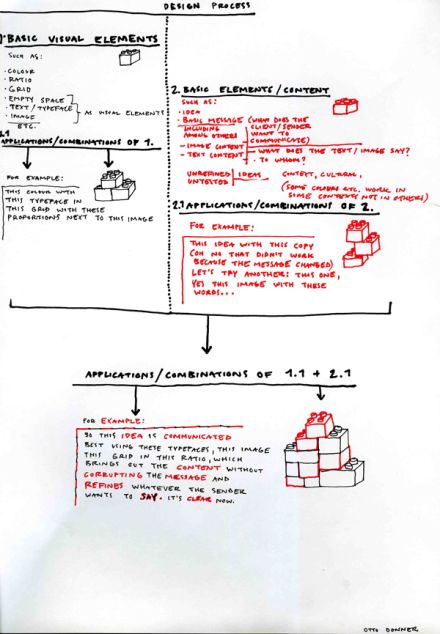 DESIGN PROCESS
1. BASIC VISUAL ELEMENTS
SUCH AS:
· COLOUR
· RATIO
· GRID
· EMPTY SPACE
· TEXT/TYPEFACE
· IMAGE
ETC.
AS VISUAL ELEMENTS
1.1
APPLICATIONS/COMBINATIONS OF 1.
FOR EXAMPLE:
THIS COLOUR WITH
THIS TYPEFACE IN
THIS GRID WITH THESE
PROPORTIONS NEXT TO THIS IMAGE
2. BASIC ELEMENTS/CONTENT
SUCH AS:
· IDEA
· BASIC MESSAGE (WHAT DOES THE
INCLUDING CLIENT/SENDER
AMONG OTHERS WANT TO
COMMUNICATE)
- IMAGE CONTENT
- TEXT CONTENT
WHAT DOES THE TEXT/IMAGE SAY?
· TO WHOM?
UNREFINED IDEAS CONTEXT, CULTURAL,
UNTESTED
(SOME COLOURS ETC. WORK IN
SOME CONTEXTS NOT IN OTHERS)
2.1 APPLICATIONS/COMBINATIONS OF 2.
FOR EXAMPLE:
THIS IDEA WITH THIS COPY
(OH NO THAT DIDN'T WORK
BECAUSE THE MESSAGE CHANGED)
LET'S TRY ANOTHER: THIS ONE,
YES THIS IMAGE WITH THESE
WORDS...
APPLICATIONS/COMBINATIONS OF 1.1 + 2.1
FOR EXAMPLE:
SO THIS IDEA IS COMMUNICATED
BEST USING THESE TYPEFACES, THIS IMAGE
THIS GRID IN THIS RATIO, WHICH
BRINGS OUT THE CONTENT WITHOUT
CORRUPTING THE MESSAGE AND
REFINES WHATEVER THE SENDER
WANTS TO SAY. IT'S CLEAR NOW.
OTTO DONNER